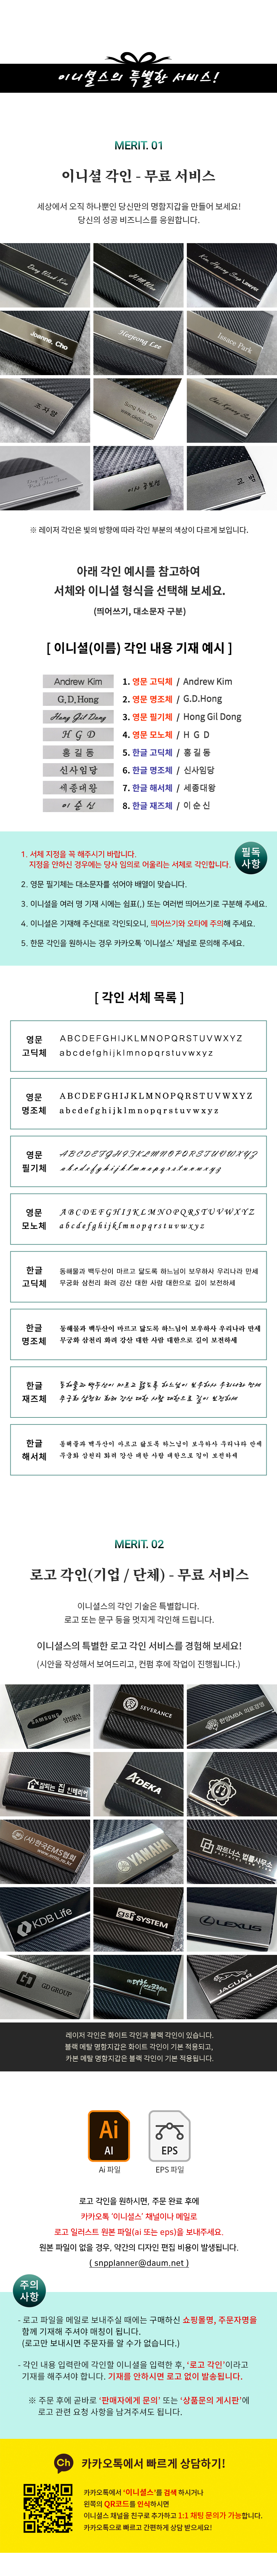 이니셜스의 특별한 서비스!
MERIT. 01
이니셜 각인 - 무료 서비스
세상에서 오직 하나뿐인 당신만의 명함지갑을 만들어 보세요!
당신의 성공 비즈니스를 응원합니다.
Joanne, Cho
Heejeong Lee
Isaace Park
조자양
※ 레이저 각인은 빛의 방향에 따라 각인 부분의 색상이 다르게 보입니다.
아래 각인 예시를 참고하여
서체와 이니셜 형식을 선택해 보세요.
(띄어쓰기, 대소문자 구분)
[ 이니셜(이름) 각인 내용 기재 예시 ]
Andrew Kim 1. 영문 고딕체 / Andrew Kim
G.D.Hong 2. 영문 명조체 / G.D.Hong
Hong Gil Dong 3. 영문 필기체 / Hong Gil Dong
H G D 4. 영문 모노체 / H G D
홍길동 5. 한글 고딕체 / 홍길동
신사임당 6. 한글 명조체 / 신사임당
세종대왕 7. 한글 해서체 / 세종대왕
이순신 8. 한글 재즈체 / 이순신
필독
사항
1. 서체 지정을 꼭 해주시기 바랍니다.
지정을 안하신 경우에는 당사 임의로 어울리는 서체로 각인합니다.
2. 영문 필기체는 대소문자를 섞어야 배열이 맞습니다.
3. 이니셜을 여러 명 기재 시에는 쉼표(,) 또는 여러번 띄어쓰기로 구분해 주세요.
4. 이니셜은 기재해 주신대로 각인되오니, 띄어쓰기와 오타에 주의해 주세요.
5. 한문 각인을 원하시는 경우 카카오톡 '이니셜스' 채널로 문의해 주세요.
[ 각인 서체 목록 ]
영문
고딕체
ABCDEFGHIJKLMNOPQRSTUVWXYZ
abcdefghijklmnopqrstuvwxyz
영문
명조체
ABCDEFGHIJKLMNOPQRSTUVWXYZ
abcdefghijklmnopqrstuvwxyz
영문
필기체
ABCDEFGHIJKLMNOPQRSTUVWXYZ
abcdefghijklmnopqrstuvwxyz
영문
모노체
ABCDEFGHIJKLMNOPQRSTUVWXYZ
abcdefghijklmnopqrstuvwxyz
한글
고딕체
동해물과 백두산이 마르고 닳도록 하느님이 보우하사 우리나라 만세
무궁화 삼천리 화려 강산 대한 사람 대한으로 길이 보전하세
한글
명조체
동해물과 백두산이 마르고 닳도록 하느님이 보우하사 우리나라 만세
무궁화 삼천리 화려 강산 대한 사람 대한으로 길이 보전하세
한글
재즈체
동해물과 백두산이 마르고 닳도록 하느님이 보우하사 우리나라 만세
무궁화 삼천리 화려 강산 대한 사람 대한으로 길이 보전하세
한글
해서체
동해물과 백두산이 마르고 닳도록 하느님이 보우하사 우리나라 만세
무궁화 삼천리 화려 강산 대한 사람 대한으로 길이 보전하세
MERIT. 02
로고 각인(기업 / 단체) - 무료 서비스
이니셜스의 각인 기술은 특별합니다.
로고 또는 문구 등을 멋지게 각인해 드립니다.
이니셜스의 특별한 로고 각인 서비스를 경험해 보세요!
(시안을 작성해서 보여드리고, 컨펌 후에 작업이 진행됩니다.)
SEVERANCE
ADEKA
(사)한국EMS협회
YAMAHA
파트너스 법률사무소
KDB Life
SYSTEM
LEXUS
GD GROUP
JAGUAR
레이저 각인은 화이트 각인과 블랙 각인이 있습니다.
블랙 메탈 명함지갑은 화이트 각인이 기본 적용되고,
카본 메탈 명함지갑은 블랙 각인이 기본 적용됩니다.
Ai
AI
EPS
Ai 파일
EPS 파일
로고 각인을 원하시면, 주문 완료 후에
카카오톡 '이니셜스' 채널이나 메일로
로고 일러스트 원본 파일(ai 또는 eps)을 보내주세요.
원본 파일이 없을 경우, 약간의 디자인 편집 비용이 발생됩니다.
( snpplanner@daum.net )
주의
사항
- 로고 파일을 메일로 보내주실 때에는 구매하신 쇼핑몰명, 주문자명을
함께 기재해 주셔야 매칭이 됩니다.
(로고만 보내시면 주문자를 알 수가 없습니다.)
- 각인 내용 입력란에 각인할 이니셜을 입력한 후, '로고 각인'이라고
기재를 해주셔야 합니다. 기재를 안하시면 로고 없이 발송됩니다.
※ 주문 후에 곧바로 '판매자에게 문의' 또는 '상품문의 게시판'에
로고 관련 요청 사항을 남겨주셔도 됩니다.
Ch
카카오톡에서 빠르게 상담하기!
카카오톡에서 '이니셜스'를 검색 하시거나
왼쪽의 QR코드를 인식하시면
이니셜스 채널을 친구로 추가하고 1:1 채팅 문의가 가능합니다.
카카오톡으로 빠르고 간편하게 상담 받으세요!